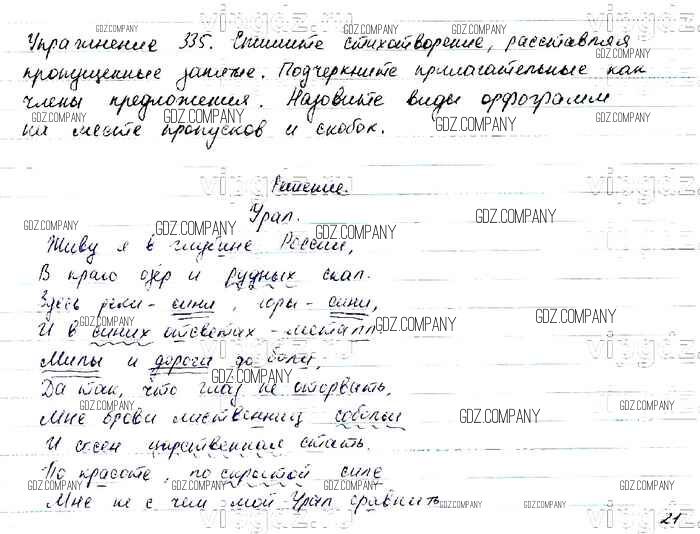 Упражнение 335. Спишите стихотворение, расставляя
пропущенные запятые. Подчеркните прилагательные как
члены предложения. Назовите виды орфограмм
на месте пропусков и скобок.
Решение.
Урал.
Живу я в глубине России,
В краю озёр и рудных скал.
Здесь реки - сини, горы - сини,
И в синих отсветах - металл.
Милы и дороги до боли,
Да так, что глаз не оторвать,
Мне брови лиственниц собольи
И сосен царственная стать.
По красоте, по скрытой силе
Мне не с чем мой Урал сравнить
21
GDZ.COMPANY
vipgdz.ru